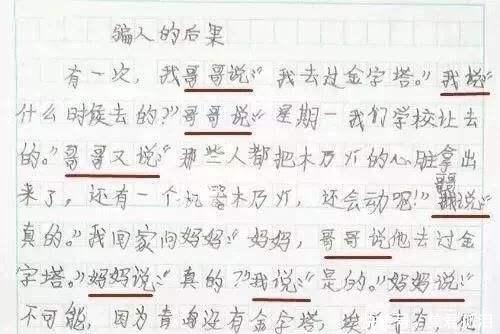 骗人的后果
有一次，我哥哥说：“我去过金字塔。”我说：“
什么时候去的？”哥哥说：“星期一我们学校让去
的。”哥哥又说：“那些人都把木乃灯的心脏拿出
来了，还有一个木乃灯，还会动呢！”哥哥说：“
真的。”我回家问妈妈：“妈妈，哥哥说他去过金
字塔。”妈妈说：“真的？”我说：“是的。”妈妈说：“
不可能，因为青岛没有金字塔，埃及有，